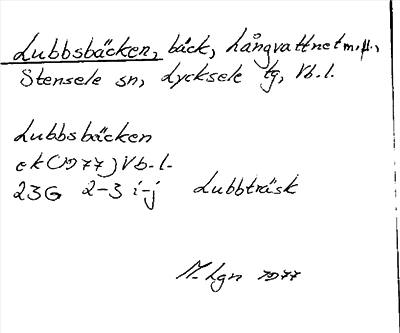 Lubbsbäcken, bäck, Långvattnet m.fl.,
Stensele sn, Lycksele tg, Vb.l.
Lubbsbäcken
ek (1977) Vb.l.
23G 2-3 i-j Lubbträsk
Lgn 1977